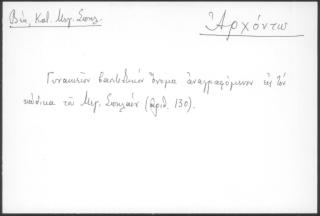 Βέη, Κατ. Μεγ. Σπηλ.
Ἀρχόντω
Γυναικεῖον βαπτιστικὸν ὄνομα ἀναγραφόμενον εἰς τὸν
κώδικα τοῦ Μεγ. Σπηλαίου (ἀριθ. 130).